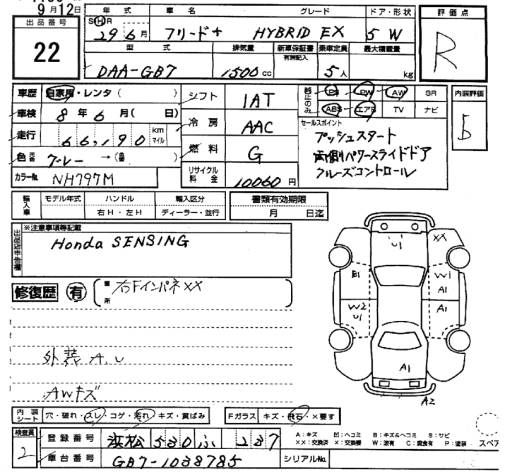 9月12日
出品番号
22
年式 車名 グレード ドア・形状
SH 29年6月 フリード+ HYBRID EX 5 W
型式 排気量 新車保証書 有(別記入) 乗車定員 最大積載量
DAA-GB7 1500cc 5人 kg
評価点
R
車歴 自家用・レンタ( )
車検 8年6月( 日)
走行 66,190 km マイル
色 グレー →( )
カラーNo. NH797M
シフト 1AT
冷房 AAC
燃料 G
リサイクル料金 10060円
PS PW AW SR
ABS エアB TV ナビ
セールスポイント
プッシュスタート
両側パワースライドドア
クルーズコントロール
内装評価
輸入車 モデル年式 ハンドル 輸入区分
右H・左H ディーラー・並行
書類有効期限
月 日迄
※注意事項等記載
Honda SENSING
修復歴 有
箇所 右Fインパネ××
外装A.U
AWキズ
U1 XX
B1 W1
A1
W2 U1 A1
A1
A2
内装シート 穴・破れ・スレ・コゲ・汚れ・キズ・黄ばみ
Fガラス キズ・飛石・×要す
検査員 2
登録番号 浜松 530 ふ 237
車台番号 GB7-1038785
シリアルNo.
A:キズ B:キズ&ヘコミ S:サビ
××:交換済 ×:要交換 W:波有 C:腐食有 P:塗装
スペア